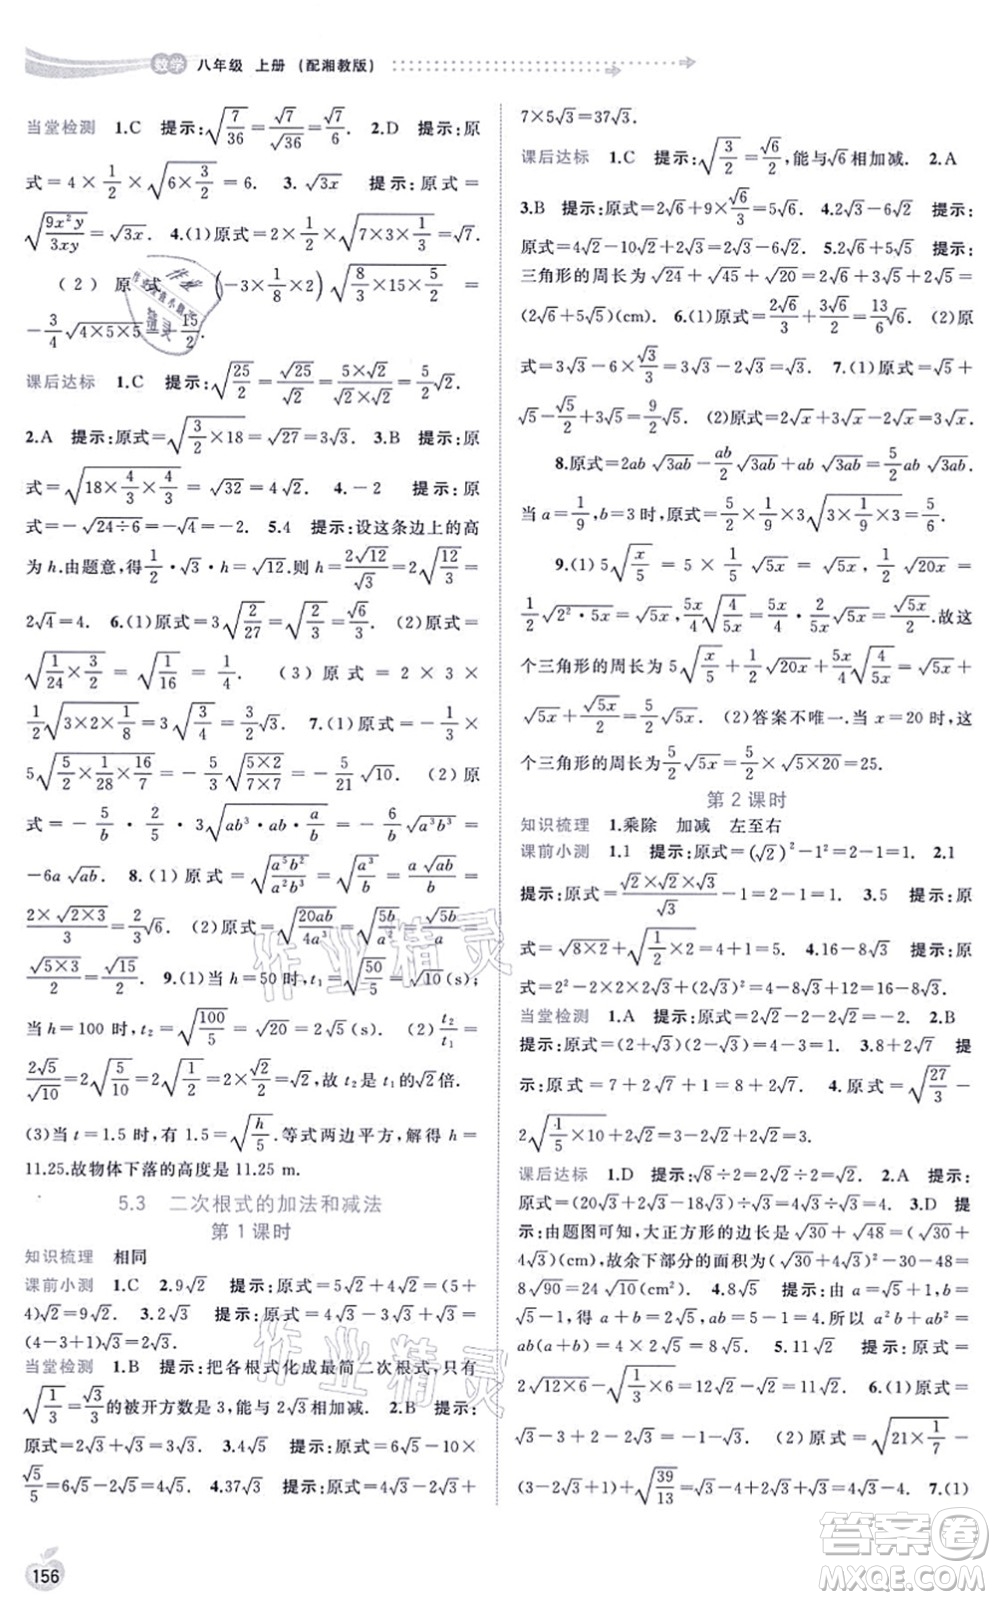 数学 八年级 上册 (配湘教版)
当堂检测 1.C 提示:√(7/36)=√7/√36=√7/6. 2.D 提示:原
式=4×1/2×√(6×3/2)=6. 3.√3x 提示:原式=
√(9x²y/3xy)=√3x. 4.(1)原式=2×1/2×√(7×3×1/3)=√7.
(2)原式=(-3×1/8×2)√(8/3×15×5/2)=
-3/4√(4×5×5
15/2.
课后达标 1.C 提示:√(25/2)=√25/√2=(5×√2)/(√2×√2)=5/2√2.
2.A 提示:原式=√(3/2×18)=√27=3√3. 3.B 提示:原
式=√(18×4/3×4/3)=√32=4√2. 4.-2 提示:原
式=-√(24÷6)=-√4=-2. 5.4 提示:设这条边上的高
为h.由题意,得1/2·√3·h=√12.则h=2√12/√3=2√(12/3)=
2√4=4. 6.(1)原式=3√(2/27)=√(2/3)=√6/3. (2)原式=
√(1/24×3/2)=√(1/16)=1/4. (3)原式=2×3×
1/2√(3×2×1/8)=3√(3/4)=3/2√3. 7.(1)原式=-1/3×
5√(5/2×1/28×16/7)=-5/3√((5×2)/(7×7))=-5/21√10. (2)原
式=-5/b·2/5·3√(ab³·a/b)=-6/b√(a²b²)=
-6a√ab. 8.(1)原式=√(a⁵b²/a²b³)=√(a³/b)
2×√(2×3)/3=2/3√6. (2)原式=√(20ab/4a³)=√(5b/a²)
√(5×3)/3=√15/3. 9.(1)当h=50时,t₁=√(50/5)=√10(s);
当h=100时,t₂=√(100/5)=√20=2√5(s). (2)t₂/t₁=
2√5/√10=2√(5/10)=2√(1/2)=√2,故t₂是t₁的√2倍.
(3)当t=1.5时,有1.5=√(h/5).等式两边平方,解得h=
11.25.故物体下落的高度是11.25 m.
5.3 二次根式的加法和减法
第1课时
知识梳理 相同
课前小测 1.C 2.9√2 提示:原式=5√2+4√2=(5+
4)√2=9√2. 3.2√3 提示:原式=4√3-3√3+√3=
(4-3+1)√3=2√3.
当堂检测 1.B 提示:把各根式化成最简二次根式,只有
√(1/3)=√3/3的被开方数是3,能与2√3相加减. 2.B 提示:
原式=2√3+√3=3√3. 3.4√5 提示:原式=6√5-2√5×
√5/5=6√5-2√5=4√5. 4.37√3 提示:原式=2√3+
7×5√3=37√3.
课后达标 1.C 提示:√(3/2)=√6/2,能与√6相加减. 2.A
3.B 提示:原式=2√6+9×√6/3=5√6. 4.2√3-6√2 提示:
原式=4√2-10√2+2√3=2√3-6√2. 5.2√6+5√5 提示:
三角形的周长为√24+√45+√20=2√6+3√5+2√5=
(2√6+5√5)(cm). 6.(1)原式=2√6/3+3√6/2=13√6/6. (2)原
式=3√3-6×√3/3=√3. 7.(1)原式=√5+
√5-√5/2+3√5=9/2√5. (2)原式=2√x+3√x-2√x=3√x.
8.原式=2ab√3ab-ab/2√3ab+ab√3ab=5/2ab√3ab.
当a=1/9,b=3时,原式=5/2×1/9×3√(3×1/9×3)=5/6.
9.(1)5√(x/5)=5×1/5√5x=√5x;1/2√20x=
1/2√(2²·5x)=√5x;5x/4√(4/5x)=5x/4×2/5x√5x=√5x/2.故这
个三角形的周长为5√(x/5)+1/2√20x+5x/4√(4/5x)=√5x+
√5x+√5x/2=5/2√5x. (2)答案不唯一.当x=20时,这
个三角形的周长为5/2√5x=5/2×√(5×20)=25.
第2课时
知识梳理 1.乘除 加减 左至右
课前小测 1.1 提示:原式=(√2)²-1²=2-1=1. 2.1
提示:原式=√2×√2×√3/√3-1=2-1=1. 3.5 提示:原
式=√(8×2)+√(1/2×2)=4+1=5. 4.16-8√3 提示:原
式=2²-2×2×2√3+(2√3)²=4-8√3+12=16-8√3.
当堂检测 1.A 提示:原式=2√2-2-2√2=-2. 2.B
提示:原式=(2+√3)(2-√3)=4-3=1. 3.8+2√7 提
示:原式=7+2√7+1=8+2√7. 4.原式=√(27/3)-
2√(1/5×10)+2√2=3-2√2+2√2=3.
课后达标 1.D 提示:√8÷√2=√(8÷2)=2. 2.A 提示:
原式=(20√3+2√3-6√3)÷4√3=16√3÷4√3=4. 3.D
提示:由题图可知,大正方形的边长是√30+√48=(√30+
4√3)cm,故余下部分的面积为(√30+4√3)²-30-48=
8√90=24√10(cm²). 4.2√5 提示:由a=√5+1,b=
√5-1,得a+b=2√5,ab=5-1=4.所以a²b+ab²=
ab(a+b)=4×2√5=8√5.
2√(12×6)-√(1/3×6)=12√2-√2=11√2. 6.(1)原式=
√3-3+2+1-2√3=-√3. (2)原式=√(21×1/7)-
(3-2√3+1)+√(39/13)=√3-4+2√3+√3=4√3-4. 7.(1)
156
作业精灵
作业精灵
答案圈
MXQE.COM